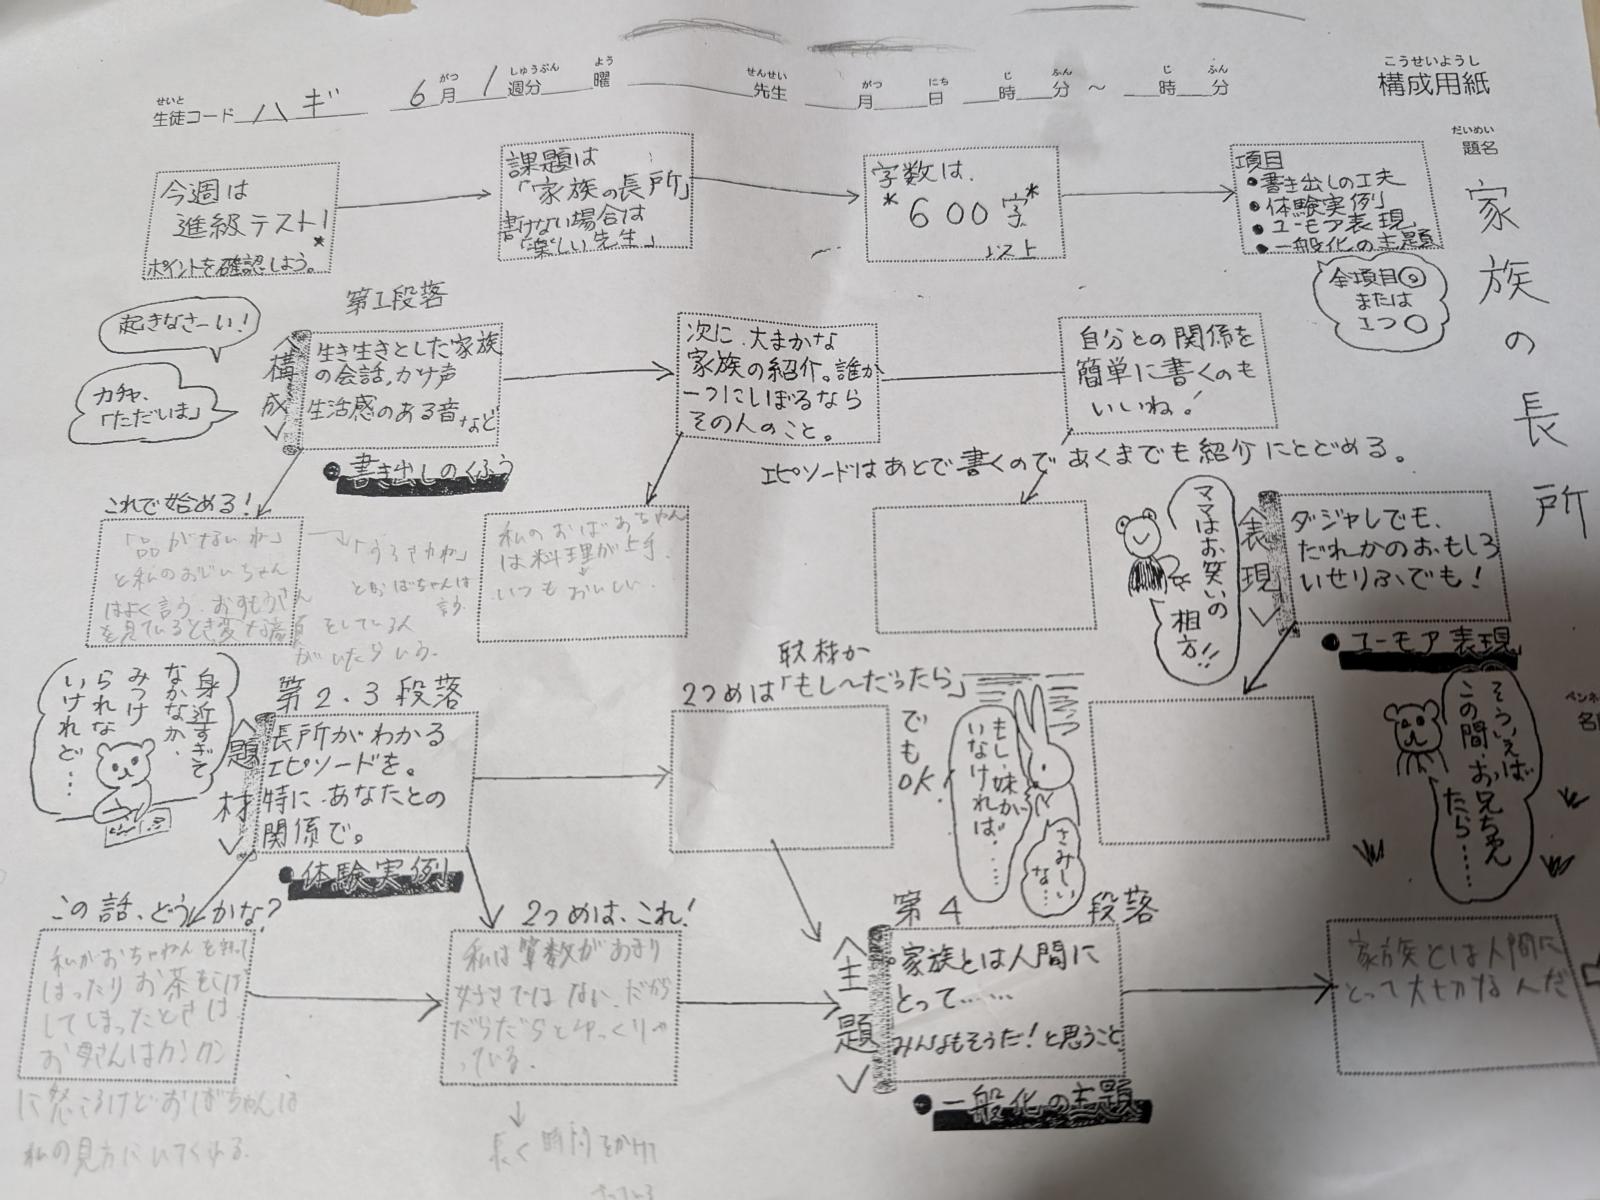 構成用紙
こうせいようし
生徒コード ハギ 6月 1週分 曜 先生 月 日 時 分 ~ 時 分
せいと がつ しゅうぶん よう せんせい がつ にち じ ふん じ ふん
だいめい
題名
家族の長所
今週は
進級テスト!
ポイントを確認しよう。
課題は
「家族の長所」
書けない場合は
「楽しい先生」
字数は、
*600字*
以上
項目
●書き出しの工夫
●体験実例
●ユーモア表現
●一般化の主題
全項目◎
または
1つ○
第1段落
起きなさーい!
カチャ、
「ただいま」
<構成>
生き生きとした家族
の会話、かけ声
生活感のある音など
●書き出しのくふう
次に、大まかな
家族の紹介。誰か
一つにしぼるなら
その人のこと。
自分との関係を
簡単に書くのも
いいね!
エピソードはあとで書くのであくまでも紹介にとどめる。
これで始める!
「品がないわ」
と私のおじいちゃん
はよく言う。おすもうさん
を見ているとき変な
をしている人
がいたらいう。
「うるさいわね」
とおばちゃんは
言う
私のおばあちゃん
は料理が上手。
いつもおいしい。
ママはお笑いの
相方!!
<表現>
ダジャレでも、
だれかのおもしろ
いせりふでも!
●ユーモア表現
そういえば
この間お兄ちゃん
たら……
ペンネ
身近すぎて
なかなか、
みつけ
られな
いけれど…
第2.3段落
<題材>
長所がわかる
エピソードを。
特に、あなたとの
関係で。
●体験実例
取材か
2つめは「もし~だったら」
でもOK.
もし、妹が
いなければ……
さみしい
な…
この話、どうかな?
してしまったときは
お母さんはカンカン
に怒こるけどおばちゃんは
私の見方にいてくれる。
2つめは、これ!
私は算数があまり
好きではない。だから
だらだらとゆっくりや
っている。
↓
長く時間をかけて
第4段落
<主題>
家族とは人間に
とって……
みんなもそうだ!と思うこと
●一般化の主題
家族とは人間に
とって大切なんだ